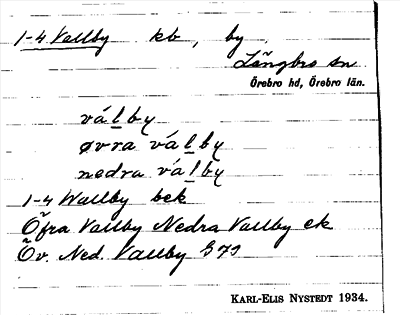 1-4 Vallby kb, by
Längbro sn
Örebro hd, Örebro län.
válby
øvra válby
nedra válby
1-4 Wallby bek
Öfra Vallby Nedra Vallby ek
Öv. Ned. Vallby G 79
KARL-ELIS NYSTEDT 1934.